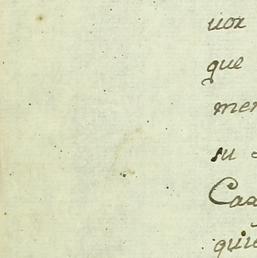 uor
que
mer
su
Caa
quie